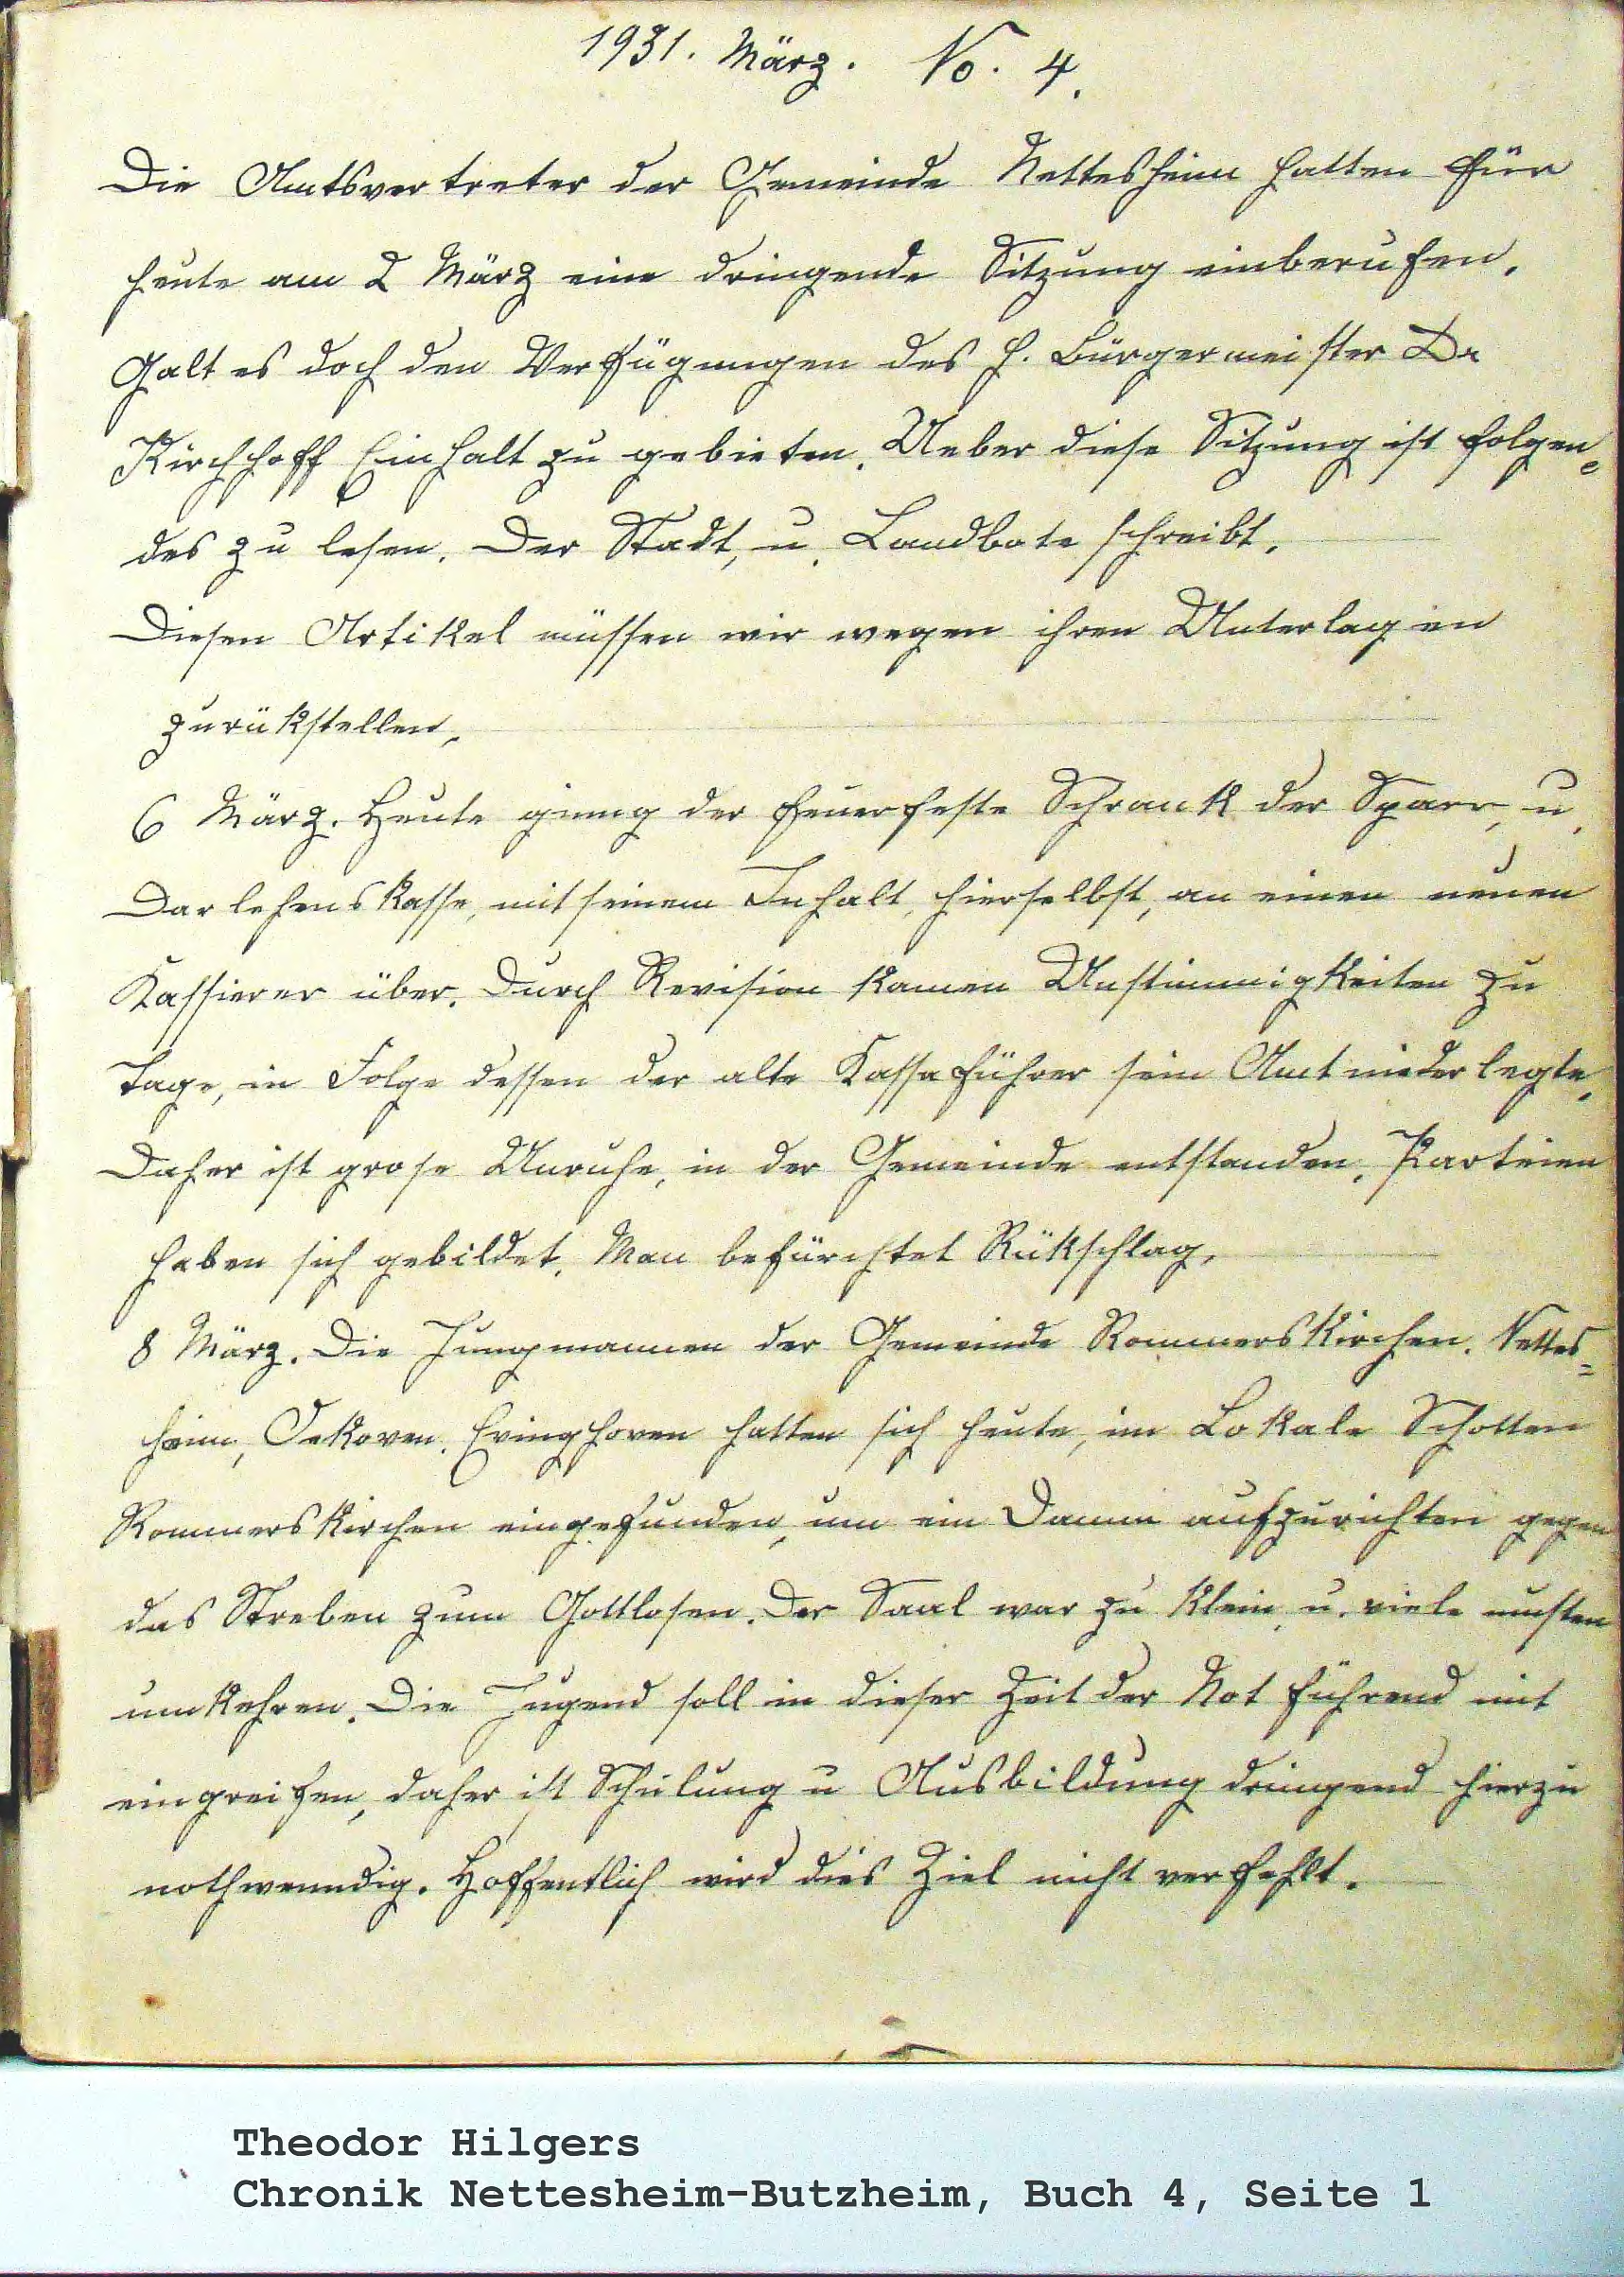 1931. März. No. 4.
Die Amtsvertreter der Gemeinde Nettesheim hatten für
heute am 2 März eine dringende Sitzung einberufen.
Galt es doch den Verfügungen des H. Bürgermeister Dr
Kirchhoff Einhalt zu gebieten. Ueber diese Sitzung ist folgen=
des zu lesen. Der Stadt, u. Landbote schreibt.
Diesen Artikel müssen wir wegen ihren Unterlagen
zurükstellen,
6 März. Heute ginng der feuerfeste Schrank der Sparr, u.
Darlehenskasse, mit seinem Inhalt, hierselbst, an einen neuen
Kassierer über. Durch Revision kamen Unstimmigkeiten zu
Tage, in Folge dessen der alte Kassaführer sein Amt niederlegte,
Daher ist grose Unruhe, in der Gemeinde entstanden, Parteien
haben sich gebildet. Man befürchtet Rükschlag,
8 März. Die Jungmannen der Gemeinde Rommerskirchen. Nettes=
heim, Oekoven. Evinghoven hatten sich heute, im Lokale Schotten
Rommerskirchen eingefunden, um ein Damm aufzurichten gegen
das Streben zum Gottlosen. Der Saal war zu klein, u. viele musten
umkehren. Die Jugend soll in dieser Zeit der Not führend mit
eingreifen, daher ist Schulung u Ausbildung dringend hierzu
nothwenndig. Hoffentlich wird dies Ziel nicht verfehlt.
Theodor Hilgers
Chronik Nettesheim-Butzheim, Buch 4, Seite 1